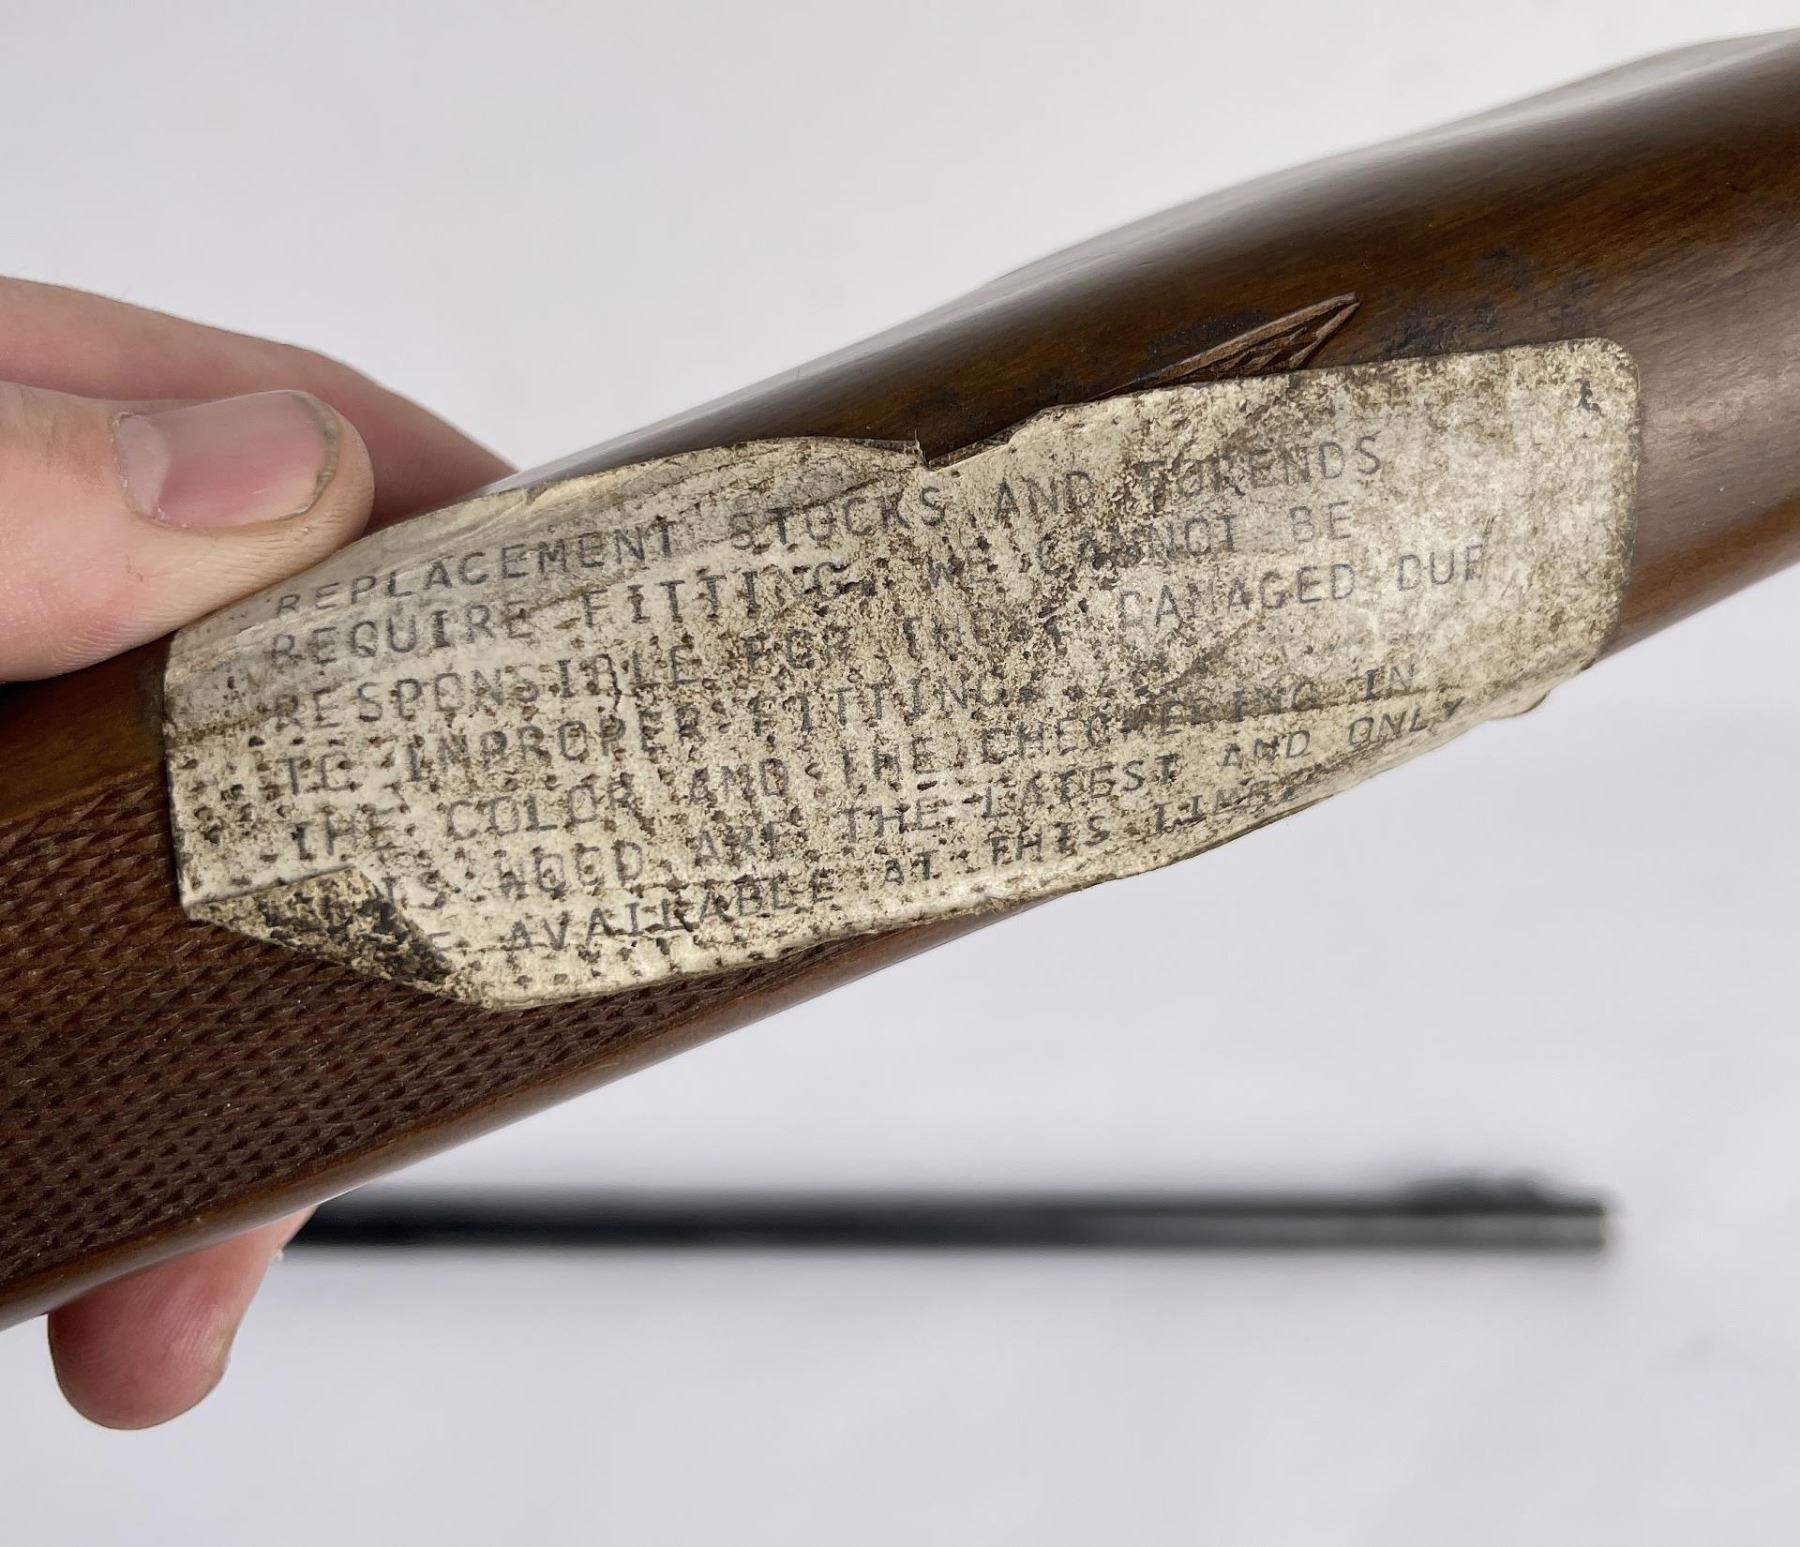 REPLACEMENT STOCKS AND FORENDS
REQUIRE FITTING. WE CANNOT BE
RESPONSIBLE FOR THOSE DAMAGED DUE
TO IMPROPER FITTING.
THE COLOR AND THE CHECKERING IN
THIS WOOD ARE THE LATEST AND ONLY
AVAILABLE AT THIS TIME.